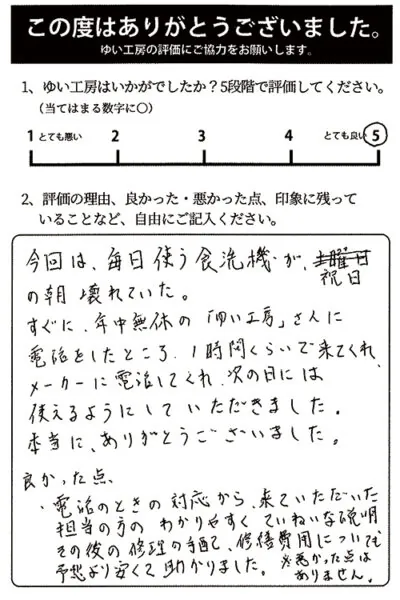 この度はありがとうございました。
ゆい工房の評価にご協力をお願いします。
1、ゆい工房はいかがでしたか？5段階で評価してください。
（当てはまる数字に○）
1 とても悪い 2 3 4 とても良い 5
2、評価の理由、良かった・悪かった点、印象に残って
いることなど、自由にご記入ください。
今回は、毎日使う食洗機が、土曜日
祝日
の朝壊れていた。
すぐに、年中無休の「ゆい工房」さんに
電話をしたところ、1時間くらいで来てくれ、
メーカーに電話してくれ、次の日には
使えるようにしていただきました。
本当に、ありがとうございました。
良かった点、
・電話のときの対応から、来ていただいた
担当の方のわかりやすくていねいな説明
その後の修理の手配、修繕費用についても
予想より安くて助かりました。 ※悪かった点は
ありません。